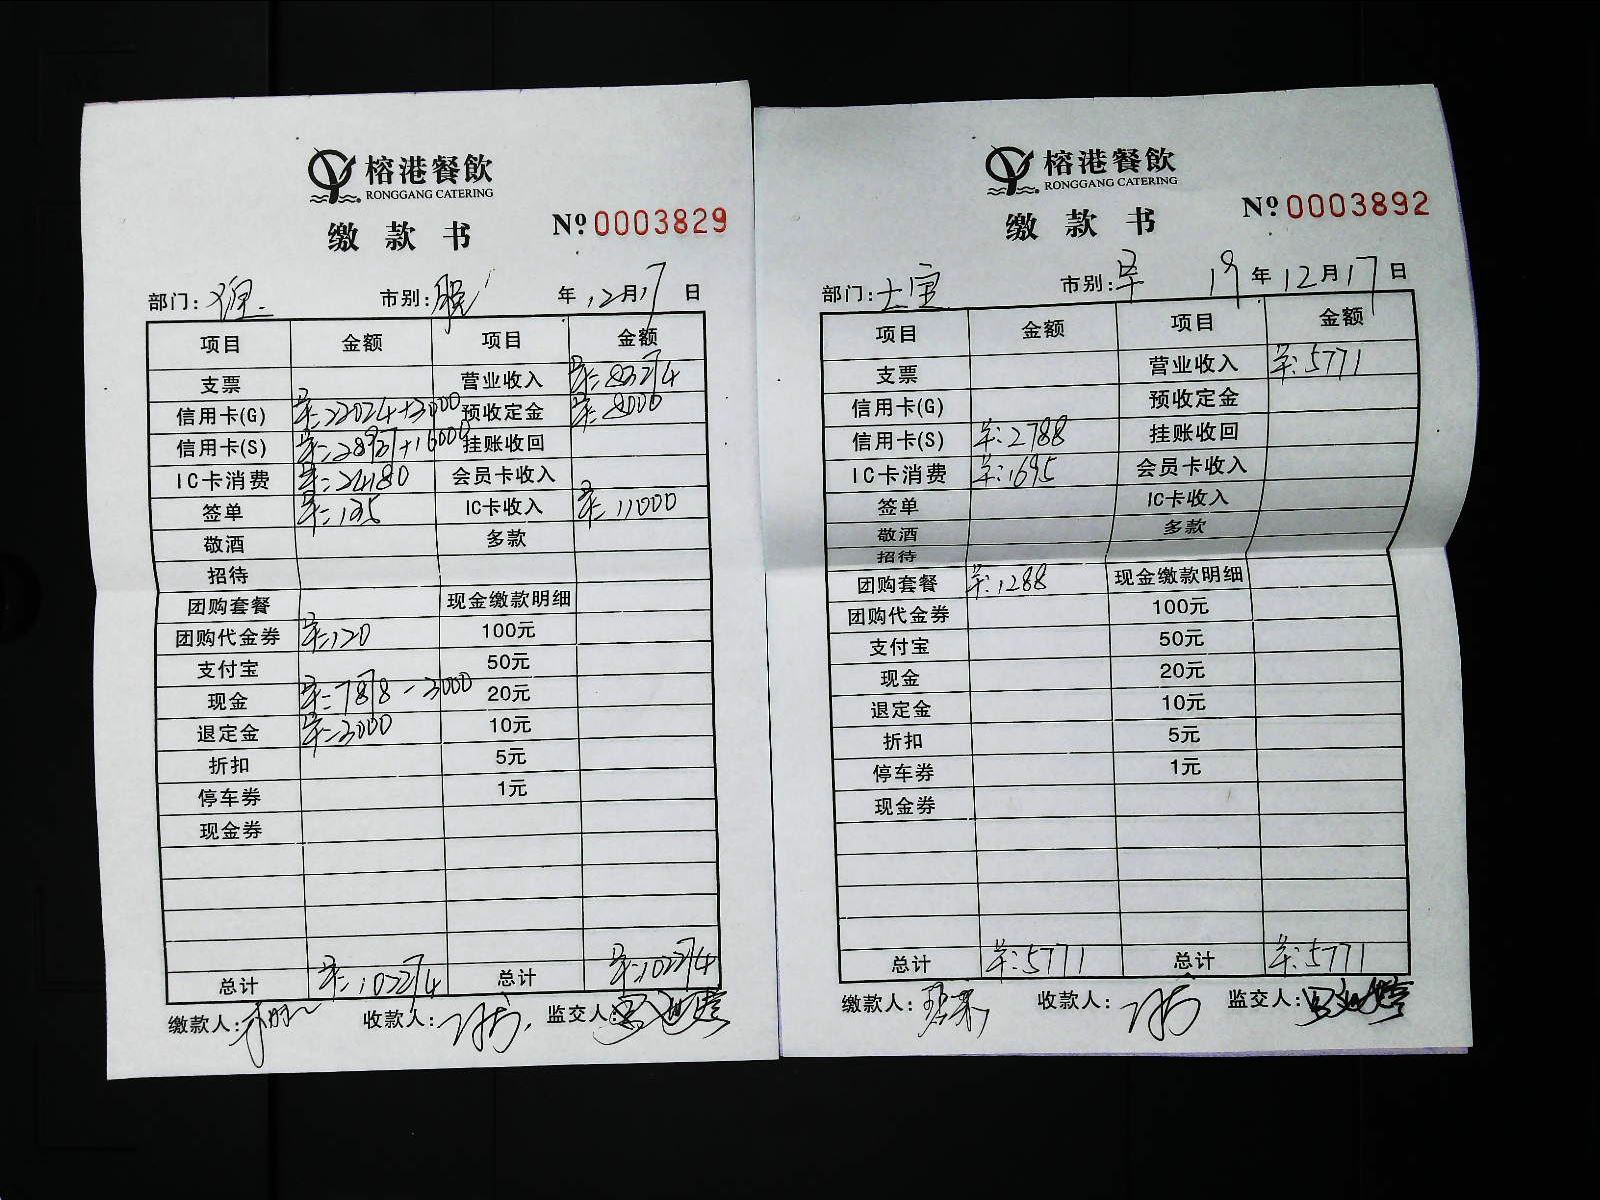 榕港餐飲
RONGGANG CATERING
缴款书
№ 0003829
部门: 市别:晚 年12月17日
项目 金额 项目 金额
支票 营业收入 83274
信用卡(G) 22024+3000 预收定金 8000
信用卡(S) 28937+16000 挂账收回
IC卡消费 24180 会员卡收入
签单 135 IC卡收入 11000
敬酒 多款
招待
团购套餐 现金缴款明细
团购代金券 120 100元
支付宝 50元
现金 7878-3000 20元
退定金 3000 10元
折扣 5元
停车券 1元
现金券
总计 102274 总计 102274
缴款人: 收款人: 监交人:
榕港餐飲
RONGGANG CATERING
缴款书
№ 0003892
部门:土宝 市别:早 19年12月17日
项目 金额 项目 金额
支票 营业收入 5771
信用卡(G) 预收定金
信用卡(S) 2788 挂账收回
IC卡消费 1695 会员卡收入
签单 IC卡收入
敬酒 多款
招待
团购套餐 1288 现金缴款明细
团购代金券 100元
支付宝 50元
现金 20元
退定金 10元
折扣 5元
停车券 1元
现金券
总计 5771 总计 5771
缴款人: 收款人: 监交人: